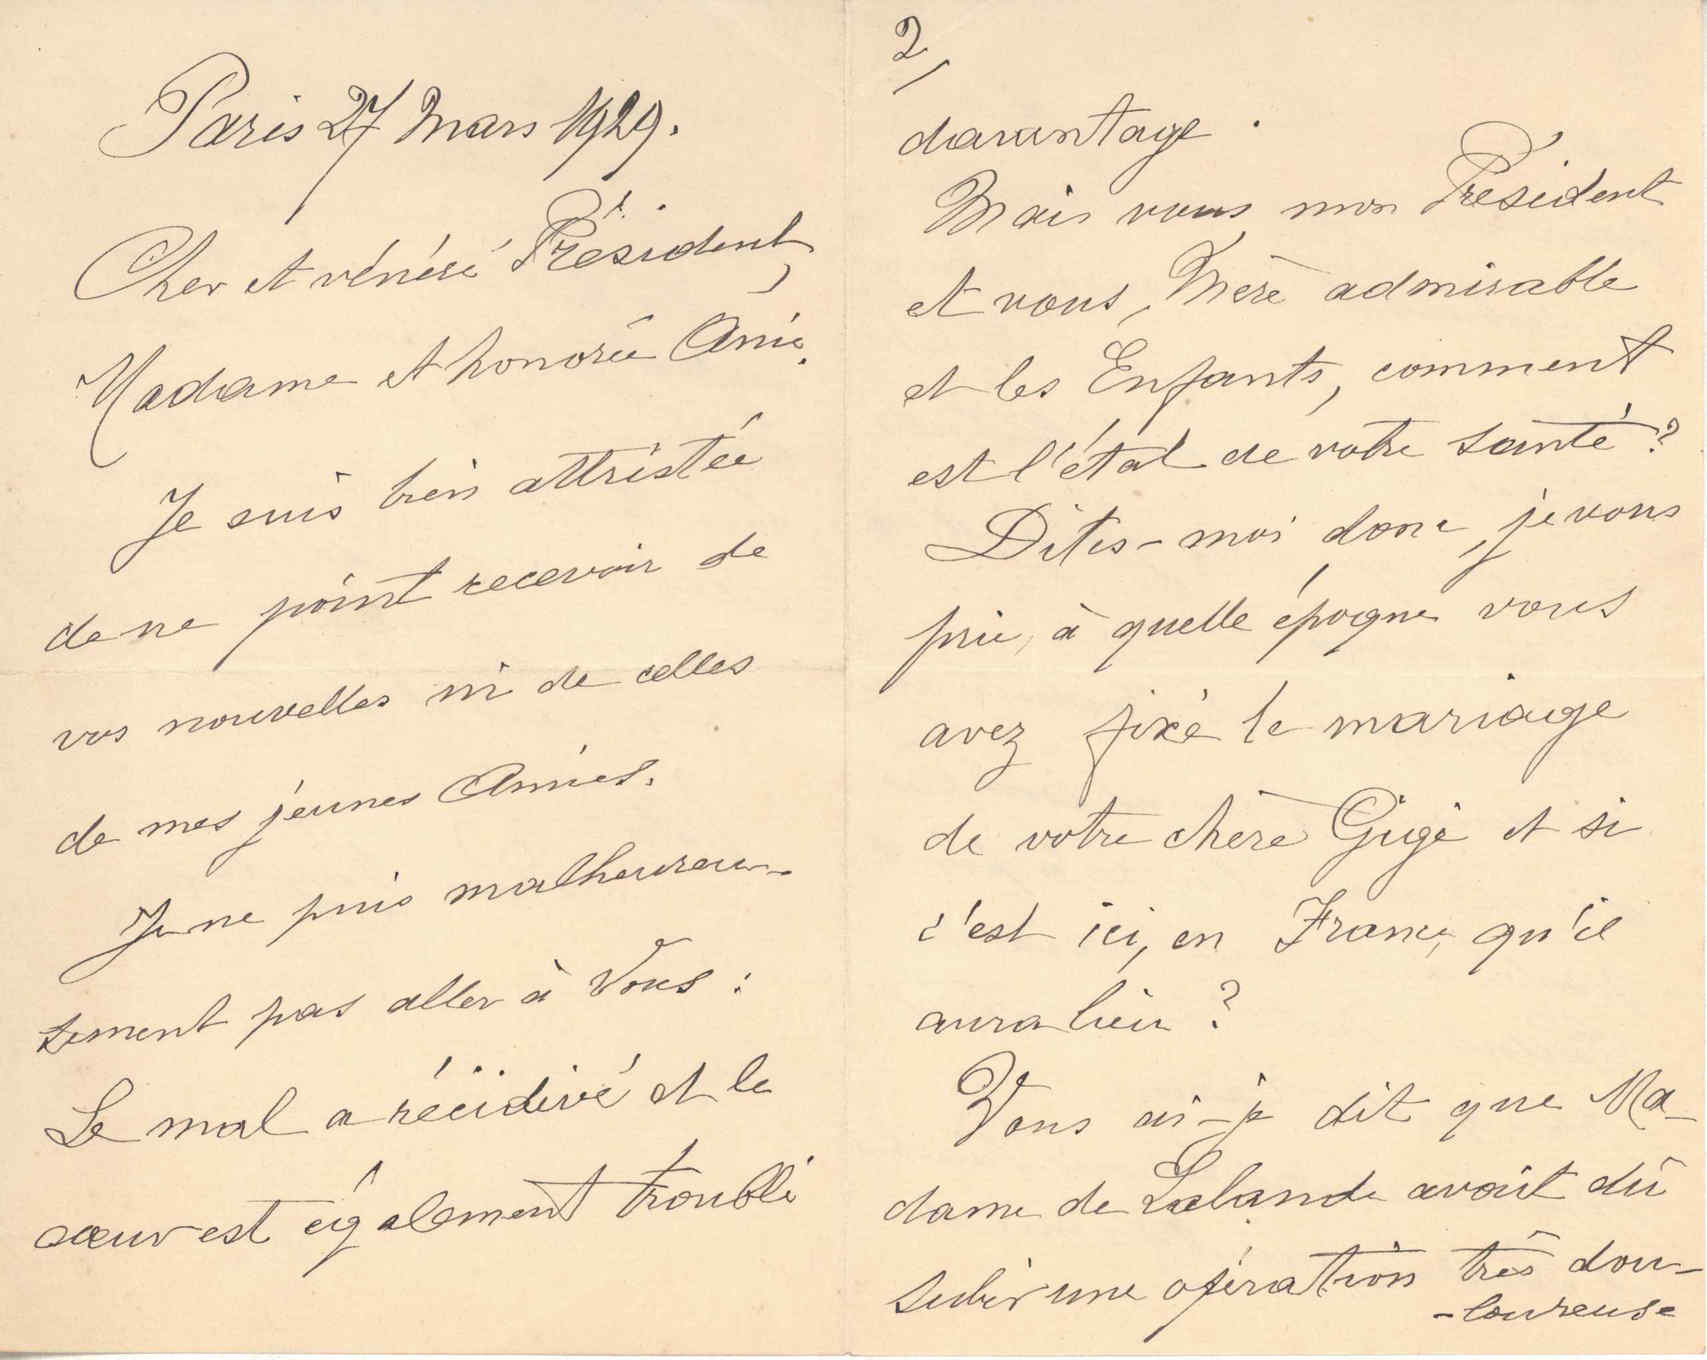 Paris 27 Mars 1929.
Cher et vénéré Président,
Madame et honorée Amie.
Je suis bien attristée
de ne point recevoir de
vos nouvelles ni de celles
de mes jeunes Amies.
Je ne puis malheureu-
sement pas aller à Vous :
Le mal a récidivé et le
cœur est également troublé
2/
davantage.
Mais vous, mon Président
et vous, Mère admirable
et les Enfants, comment
est l'état de votre santé ?
Dites-moi donc, je vous
prie, à quelle époque vous
avez fixé le mariage
de votre chère Gigé et si
c'est ici, en France, qu'il
aura lieu ?
Vous ai-je dit que Ma-
dame de Lalande avait dû
subir une opération très dou-
-loureuse